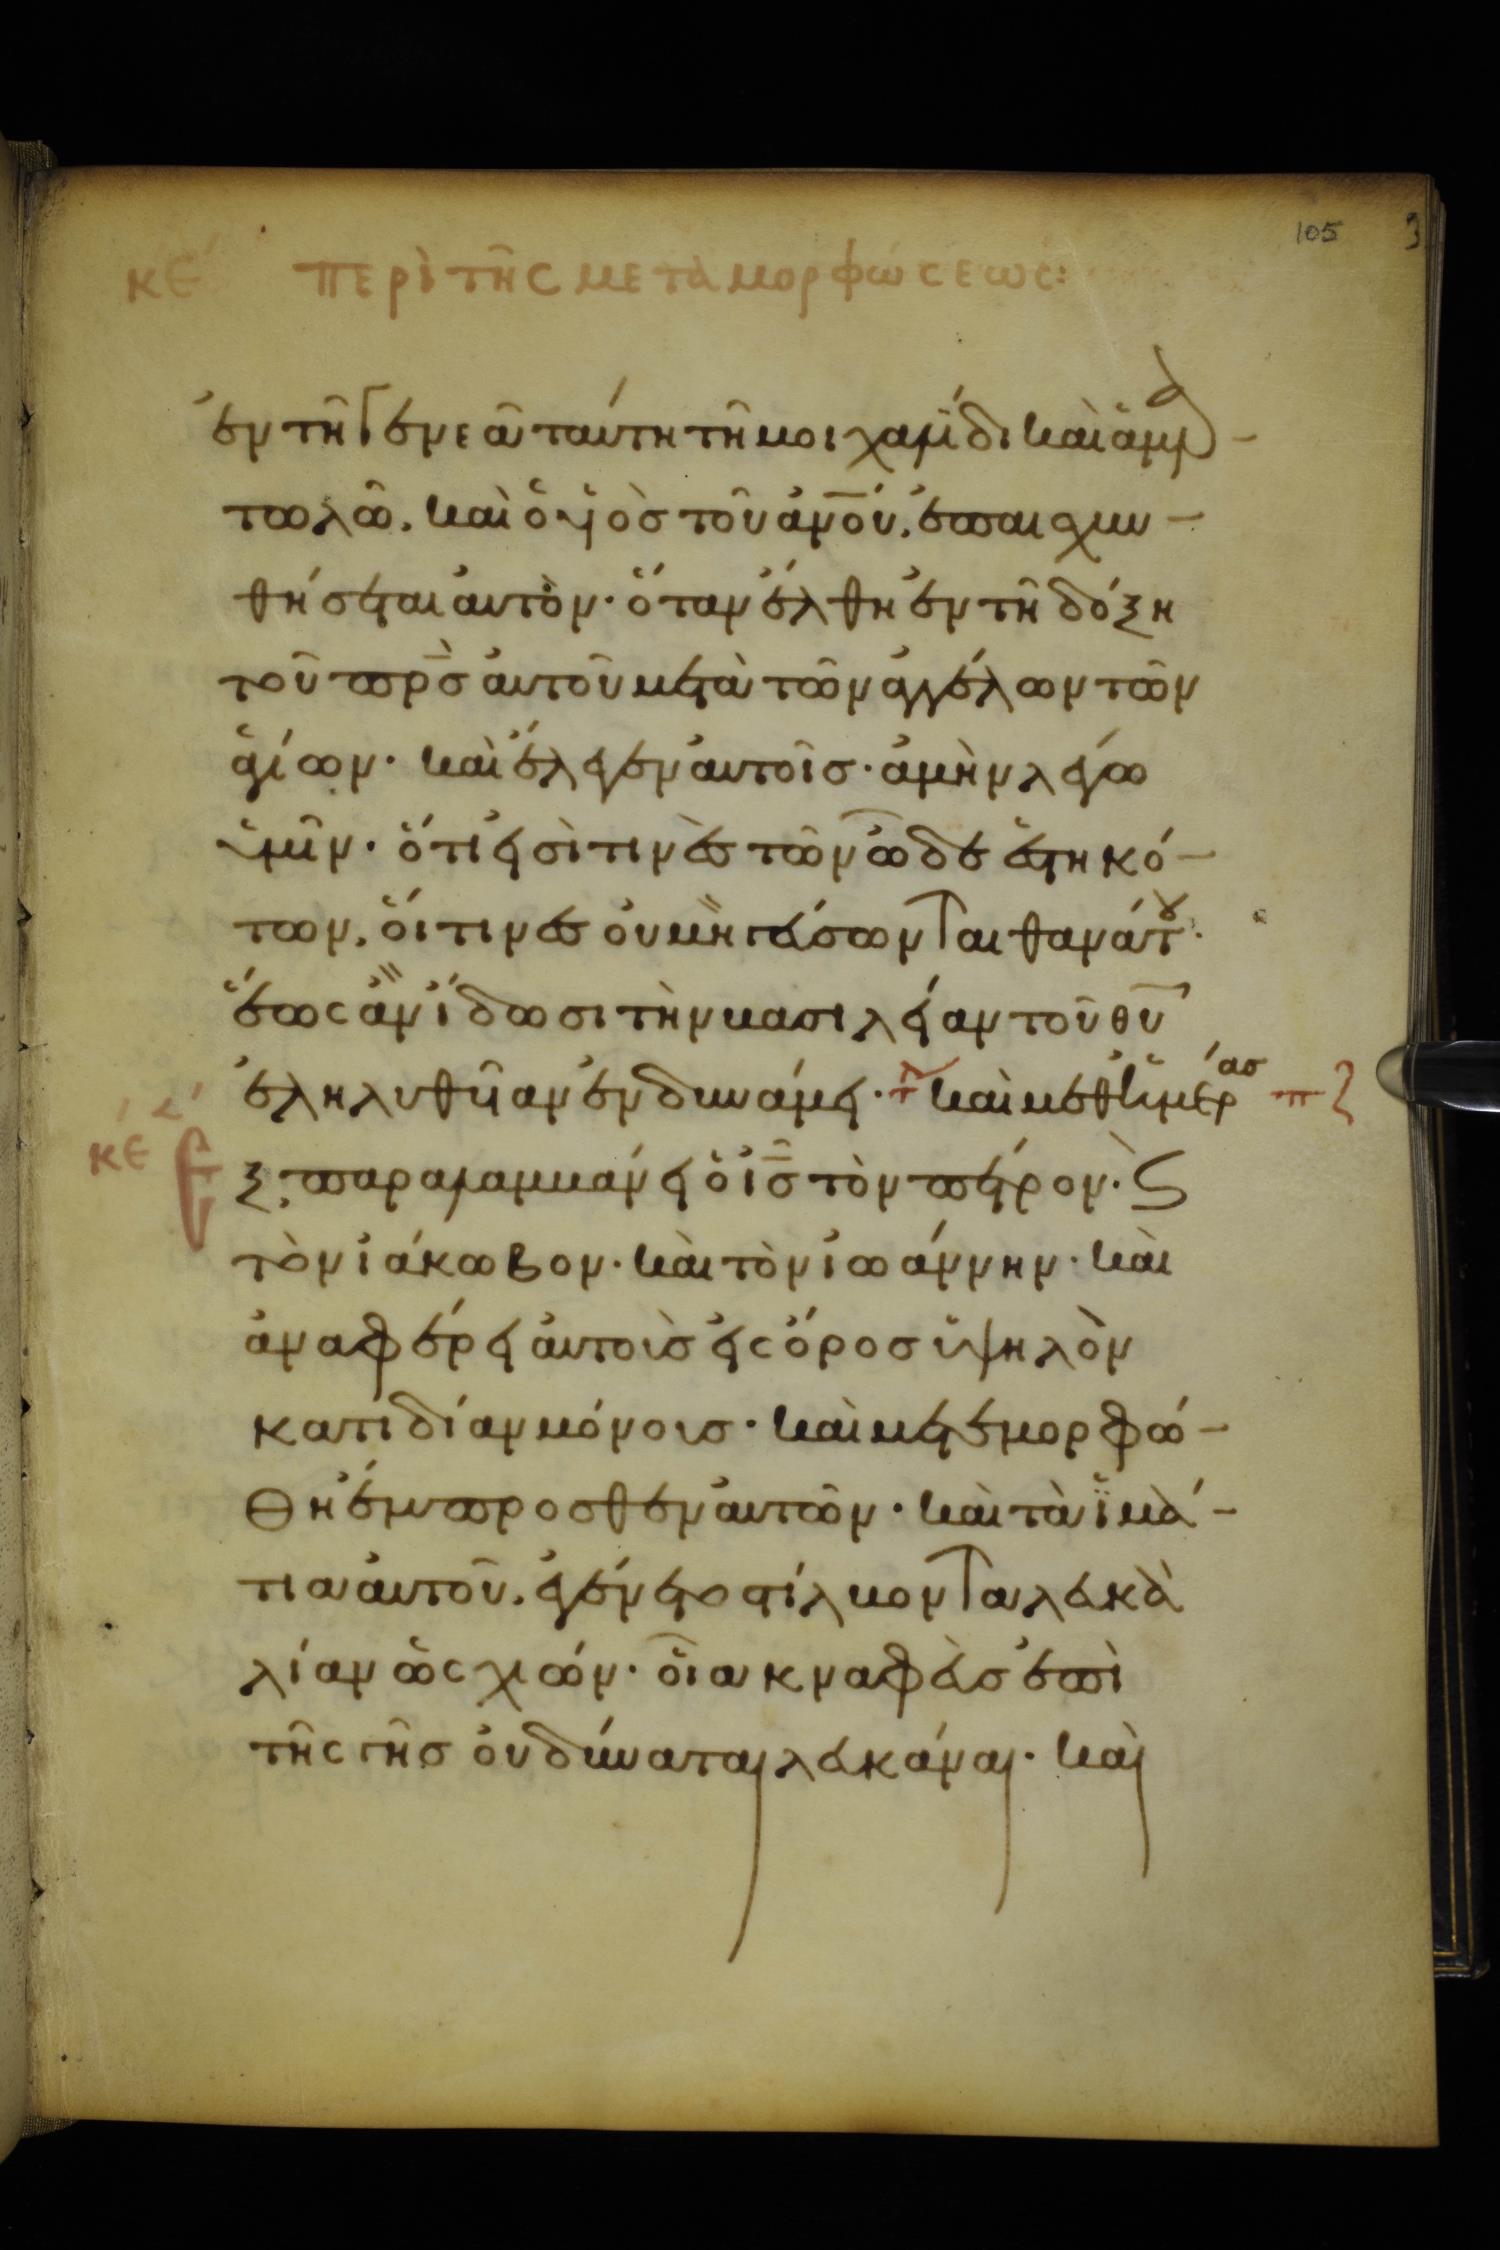 105
κε περὶ τῆς μεταμορφώσεως:
ἐν τῆ γενεᾶ ταύτη τῆ μοιχαλίδι καὶ ἁμαρ-
τωλῶ. καὶ ὁ ὑιὸσ τοῦ ἀν̅ο̅υ. ἐπαισχυν-
θήσεται ἀυτὸν· ὅταν ἔλθη ἐν τῆ δόξη
τοῦ π̅ρ̅σ̅ ἀυτοῦ μετὰ τῶν ἀγγέλων τῶν
ἁγίων· καὶ ἔλεγεν ἀυτοῖσ· ἀμὴν λέγω
ὑμῖν· ὅτι εἰσὶ τινὲσ τῶν ὧδε ἑστηκό-
των. ὅιτινεσ ὀυ μὴ γεύσωνται θανάτου·
ἕως ἂν ἴδωσι τὴν βασιλείαν τοῦ θ̅υ̅
ἐληλυθῦιαν ἐν δυνάμει· καὶ μεθ ἡμέρασ πζ
κε ξ. παραλαμβάνει ὁ ι̅σ̅ τὸν πέτρον· ϗ
τὸν ἰάκωβον· καὶ τὸν ἰωάννην· καὶ
ἀναφέρει ἀυτοὺσ εἰς ὄροσ ὑψηλὸν
κατιδίαν μόνουσ· καὶ μετεμορφώ-
θη ἔμπροσθεν ἀυτῶν· καὶ τὰ ἱ̈μά-
τια ἀυτοῦ. ἐγένετο στίλβοντα λευκὰ
λίαν ὡς χιών· ὅια κναφεὺσ ἐπὶ
τῆς γῆσ ὀυ δύναται λευκάναι· καὶ